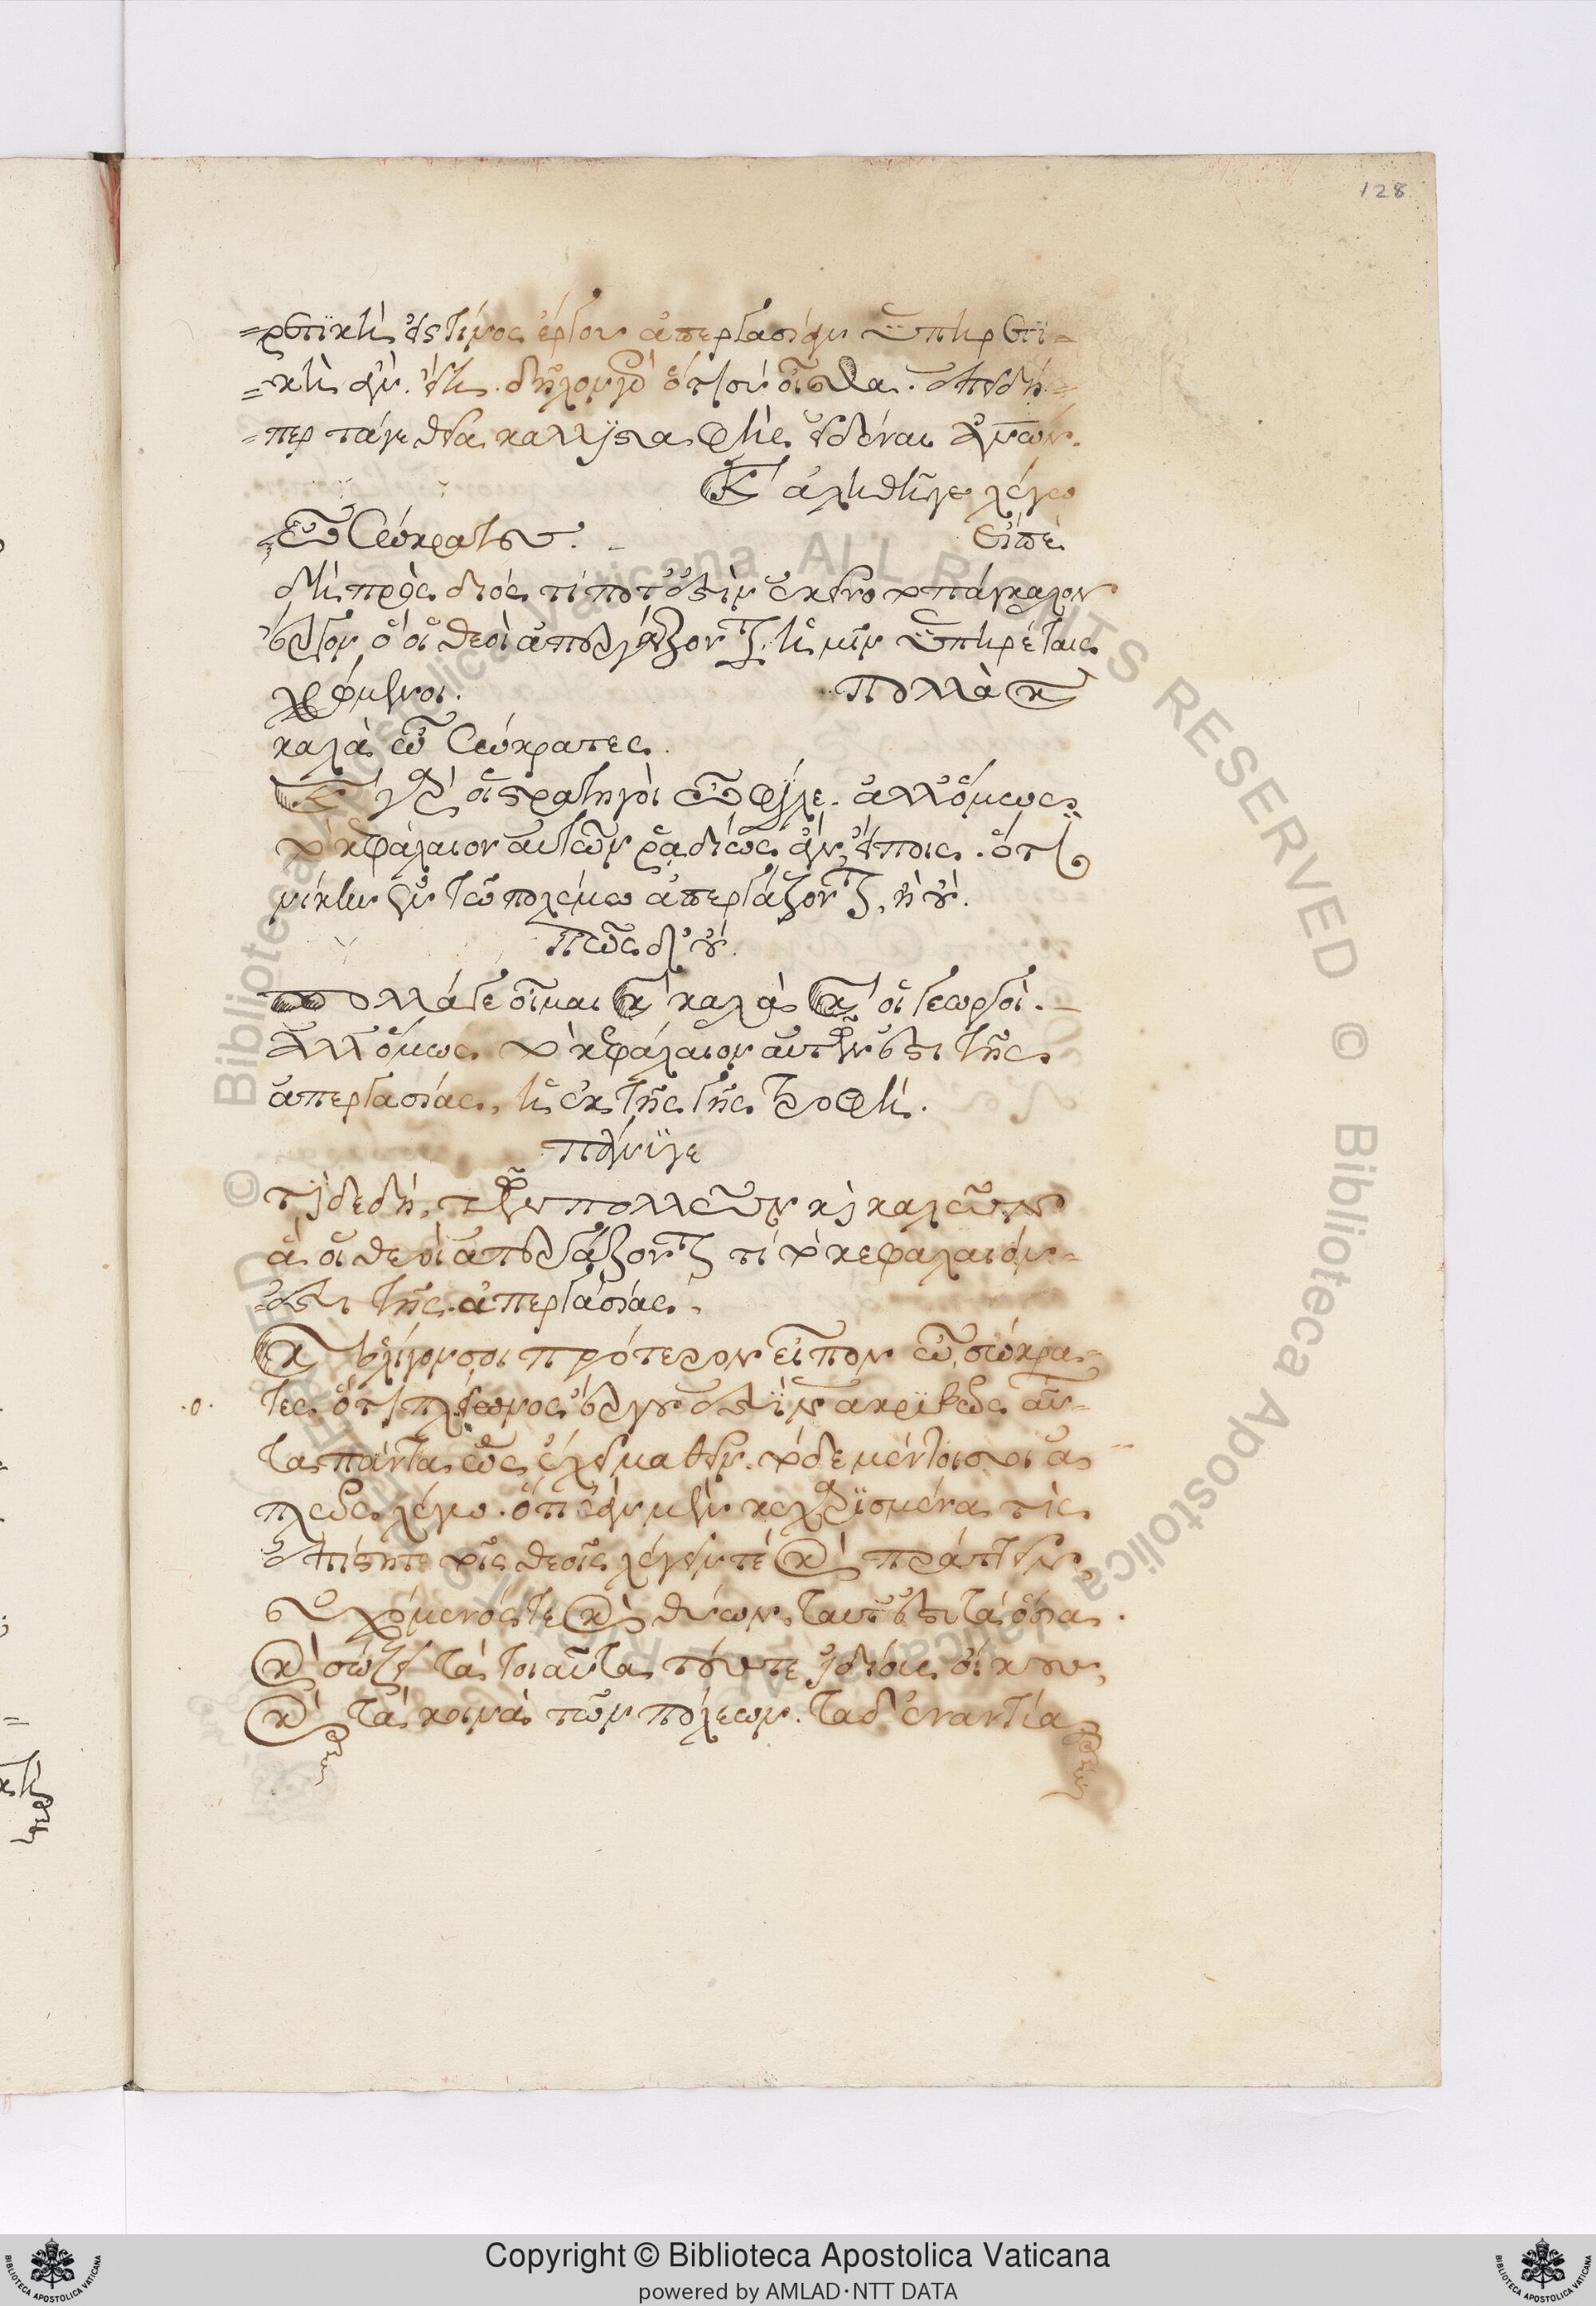 128
=ρετϊκὴ εἰς τίνος ἔργου ἀπεργασίαν ὑπηρετϊ=
=κὴ ἂν εἴη. δῆλον γὰρ ὅτι σὺ οἶσθα. ἐπειδή=
=περ τάγε θεῖα κάλλιστα φῂς εἰδέναι ἀν̅ω̅ν.
Κ(αὶ) ἀληθῆ γε λέγω
ὦ Σώκρατες. Εἰπὲ
δὴ πρὸς διός τί ποτ' ἐστὶν ἐκεῖνο τὸ πάγκαλον
ἔργον ὃ οἱ θεοὶ ἀπεργάζονται ἡμῖν ὑπηρέταις
χρώμενοι. πολλὰ κ(αὶ)
καλὰ ὦ Σώκρατες.
Κ(αὶ) γὰρ οἱ στρατηγοὶ ὦ φίλε. ἀλλ' ὅμως
τὸ κεφάλαιον αὐτῶν ῥαδίως ἂν εἴποις. ὅτι
νίκην ἐν τῶ πολέμω ἀπεργάζονται, ἢ οὔ.
πῶς δ' οὔ.
πολλὰ δε οἶμαι κ(αὶ) καλὰ κ(αὶ) οἱ γεωργοί.
ἀλλ' ὅμως τὸ κεφάλαιον αὐτῶν ἐστι τῆς
ἀπεργασίας, ἡ ἐκ τῆς γῆς τροφή.
πάνυ γε
τί δε δὴ, τῶν πολλῶν κ(αὶ) καλῶν
ἃ οἱ θεοὶ ἀπεργάζονται τί τὸ κεφάλαιόν=
=ἐστι τῆς ἀπεργασίας.
Κ(αὶ) ὀλίγον σοι πρότερον εἶπον ὦ σώκρα=
τες ὅτι πλείωνος ἔργου ἐστὶν ἀκριβῶς αὐ=
τα πάντα ὡς ἔχει μαθεῖν. τόδε μέντοι σοι ἁ
πλῶς λέγω. ὅτι ἐὰν μὲν κεχαρϊσμένα τις
ἐπίστητε τοῖς θεοῖς λέγειν τὲ κ(αὶ) πράττειν
εὐχόμενός τε κ(αὶ) θύων, ταῦτ' ἔστι τὰ ὅσια.
κ(αὶ) σώζει τὰ τοιαῦτα τούς τε ἰδίους οἴκους,
κ(αὶ) τὰ κοινὰ τῶν πόλεων. τὰ δ' ἐναντία
Copyright © Biblioteca Apostolica Vaticana
powered by AMLAD·NTT DATA